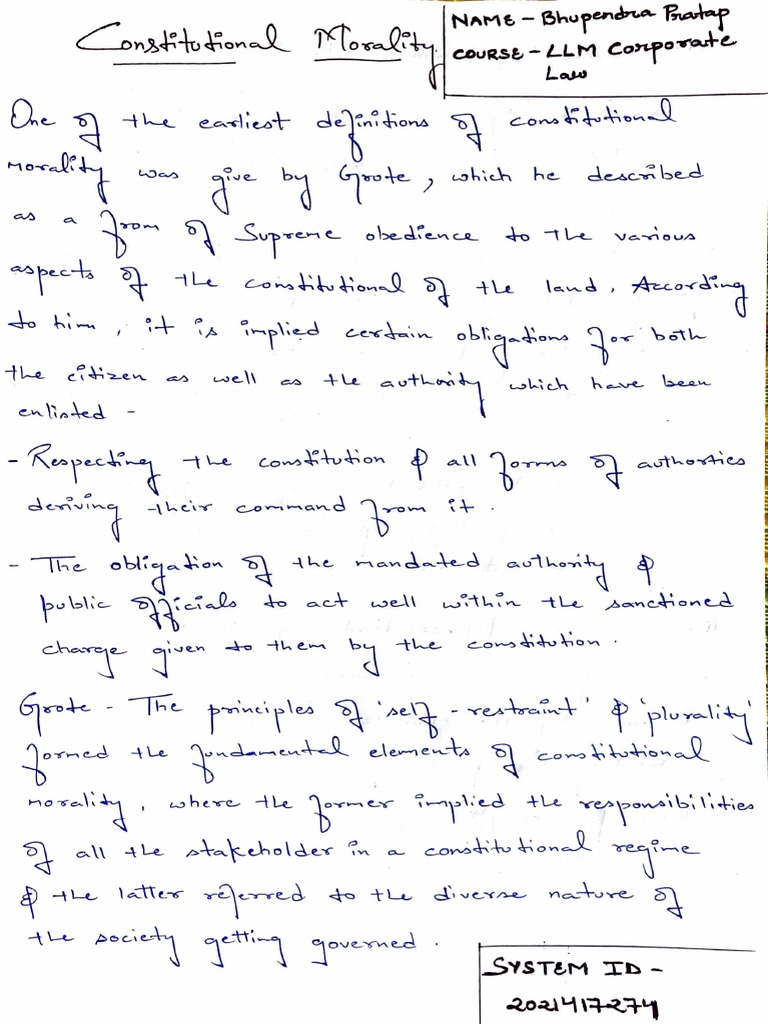 Constitutional Morality
NAME - Bhupendra Pratap
COURSE - LLM Corporate
Law
One of the earliest definitions of constitutional
morality was give by Grote, which he described
as a from of Supreme obedience to the various
aspects of the constitutional of the land. According
to him, it is implied certain obligations for both
the citizen as well as the authority which have been
enlisted -
- Respecting the constitution & all forms of authorties
deriving their command from it.
- The obligation of the mandated authority &
public officials to act well within the sanctioned
charge given to them by the constitution.
Grote - The principles of 'self - restraint' & 'plurality'
formed the fundamental elements of constitutional
morality, where the former implied the responsibilities
of all the stakeholder in a constitutional regime
& the latter referred to the diverse nature of
the society getting governed.
SYSTEM ID -
2021417274